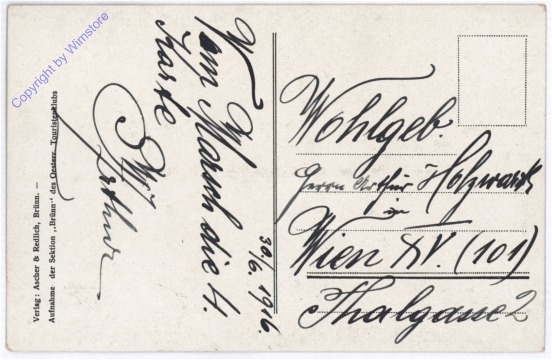 30/6. 1916.
Vom Marsch die 4.
Karte
Arthur
Wohlgeb.
Herrn Arthur Holzwarth
in
Wien XV. (101)
Thalgasse 2
Verlag: Ascher & Redlich, Brünn. —
Aufnahme der Sektion „Brünn" des Oesterr. Touristenklubs
Copyright by Wimstore